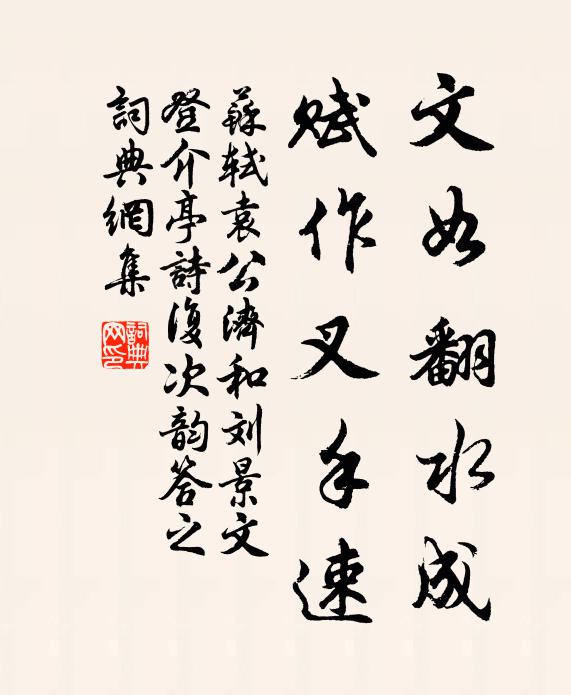 文如翻水成
賦作叉手速
蘇軾袁公濟和刘景文
登介亭詩復次韵答之
詞典網集
詞典网印